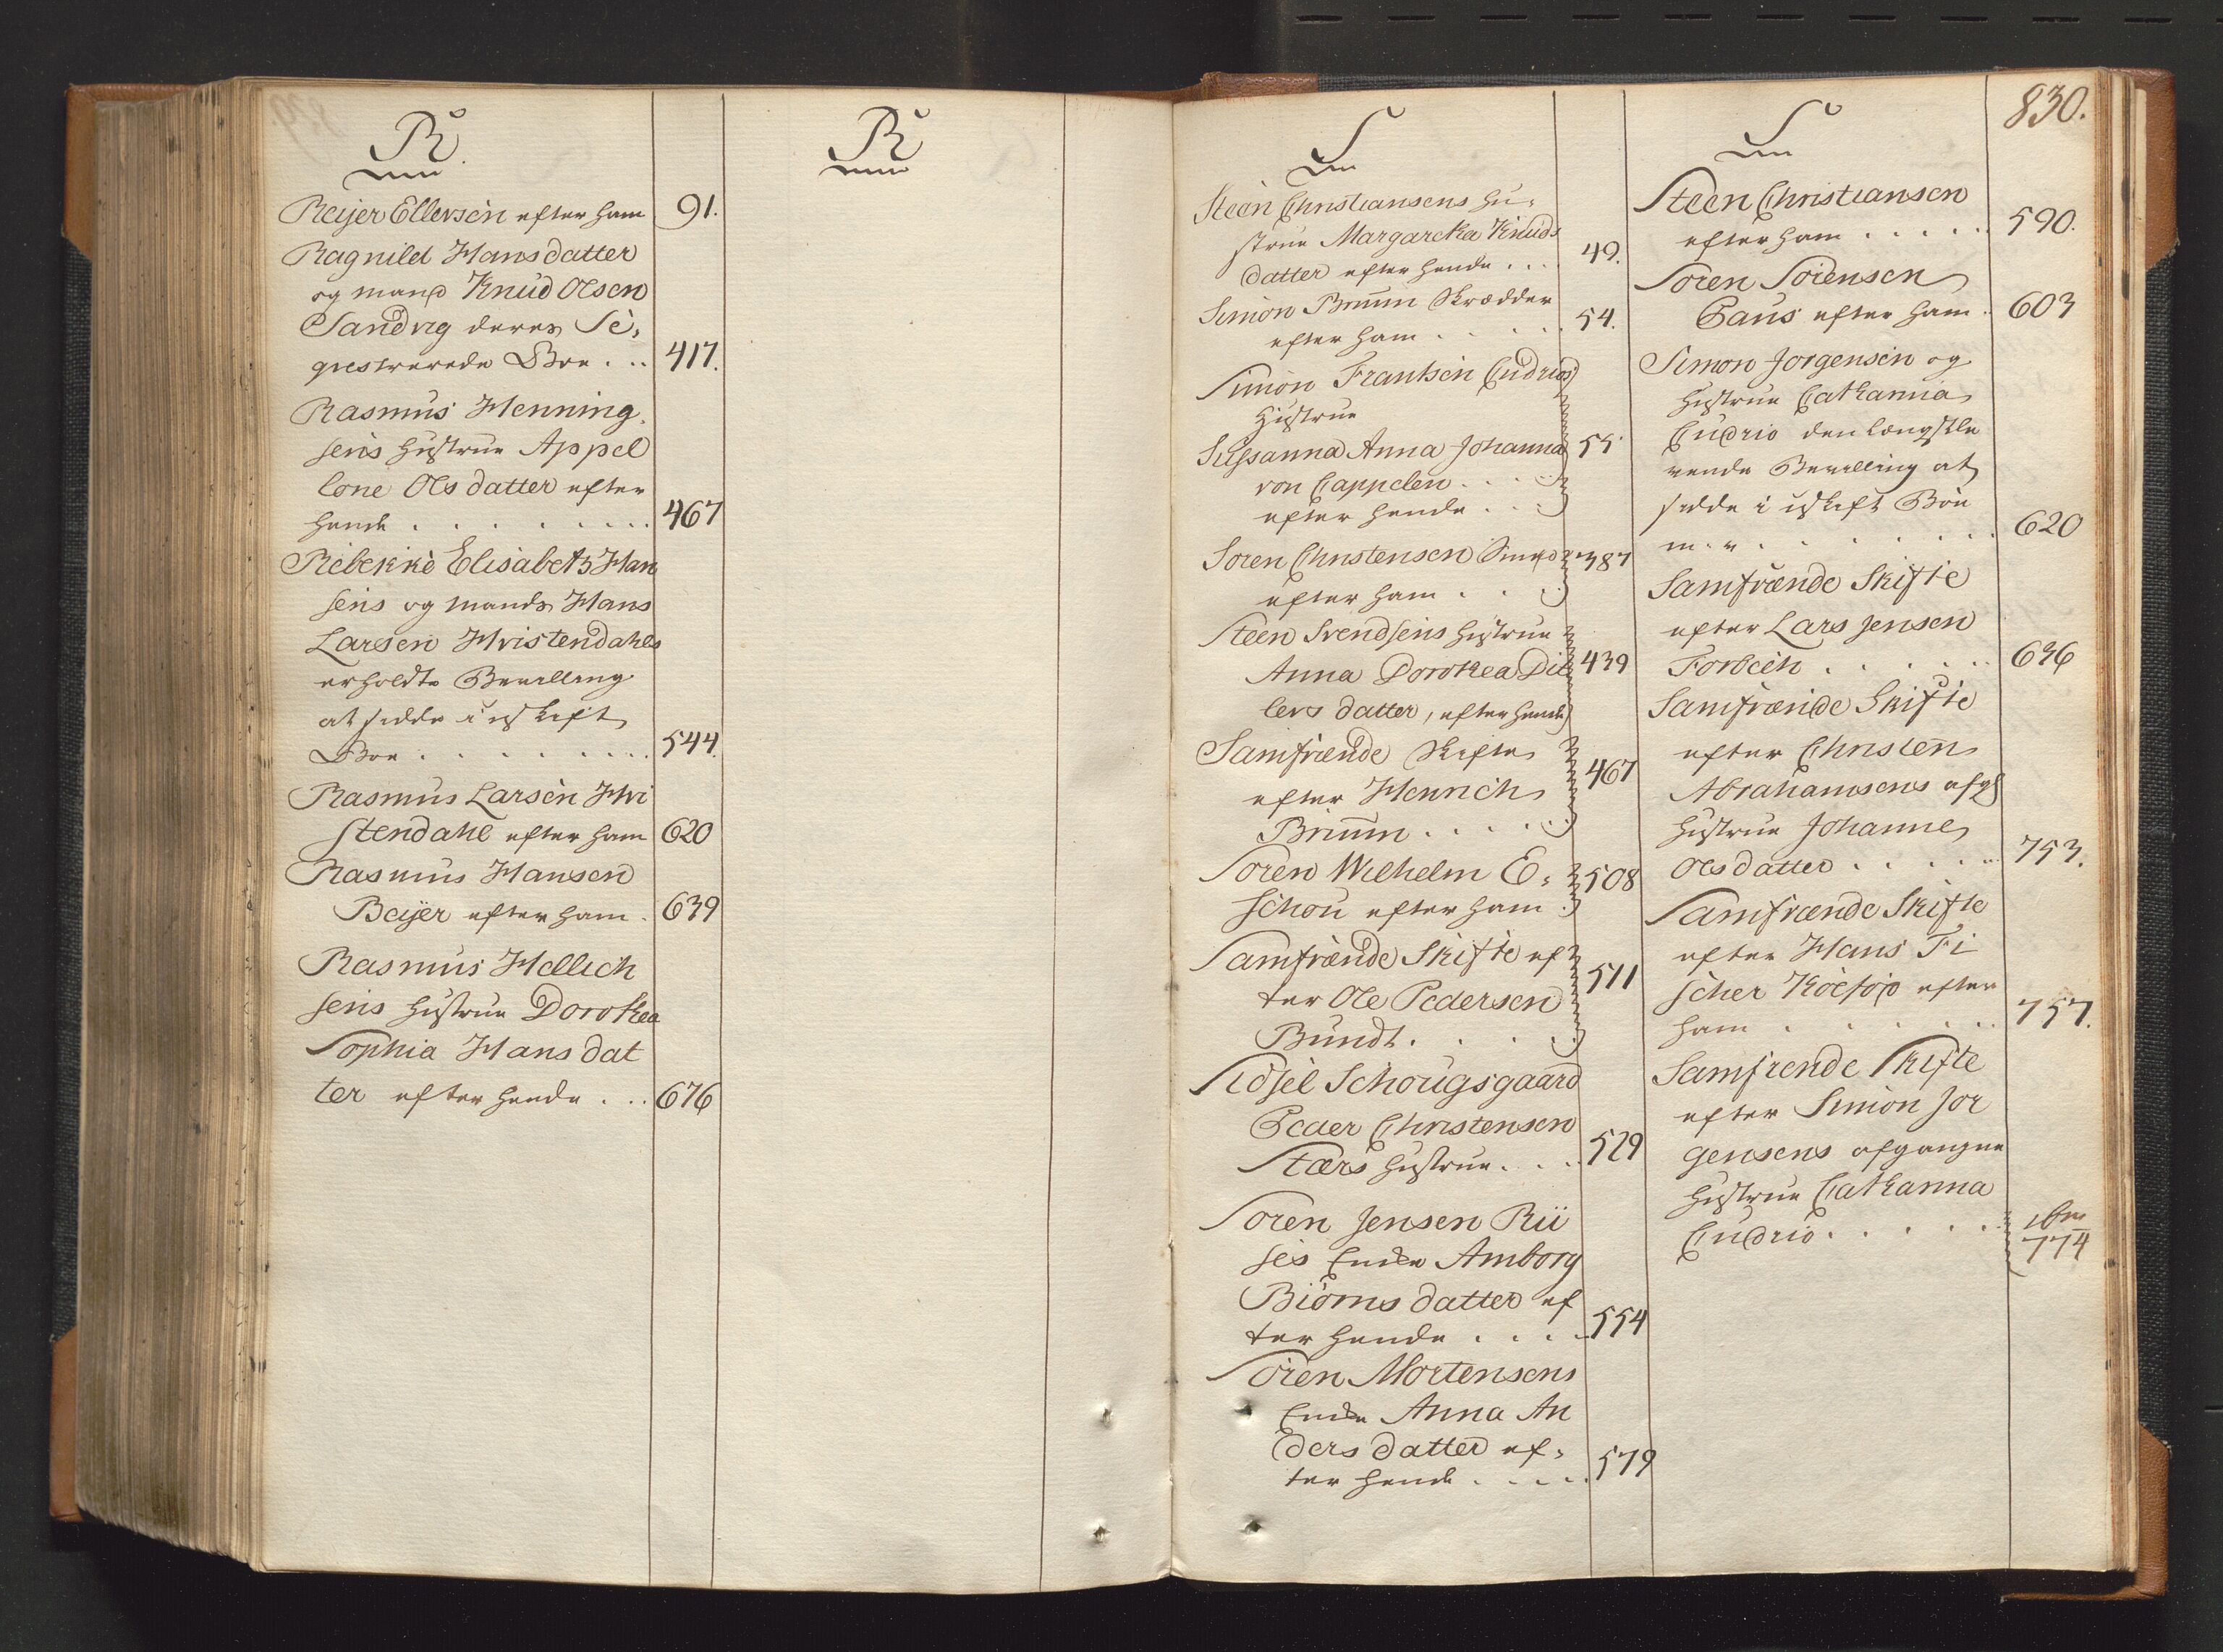 R.
Reijer Ellersen efter ham 91.
Ragnild Hansdatter
og mand Knud Olsen
Sandvig deres Se,
qvestrerede Boe . . . 417.
Rasmus Henning,
sens Hustrue Appel
lone Olsdatter efter
hende . . . . . . . . 467
Rebekke Elisabeth Han
sens og mands Hans
Larsen Hvistendahls
erholdte Bevilling
at sidde i uskift
Boe . . . . . . . . 544.
Rasmus Larsen Hvi
stendahl efter ham 620
Rasmus Hansen
Beijer efter ham . 639
Rasmus Hellich
sens Hustrue Dorothea
Sophia Hans dat
ter efter hende . . . 676
R
S
Steen Christiansens Hu,
strue Margaretha Knuds
datter efter hende . . . 49.
Simon Bruun Skrædder
efter ham . . . . . 54.
Simon Frantsen Cudrios
Hustrue
Sussanna Anna Johanna 55
von Cappelen . . . .
efter hende . . .
Soren Christensen 387
efter ham . . .
Steen Svendsens Hustrue
Anna Dorothea Dit 439
levs datter, efter hende
Samfrænde Skifte
efter Henrich 467
Bruun . . . . .
Soren Wilhelm E, 508
schou efter ham .
Samfrænde Skifte ef
ter Ole Pedersen 511
Bundt . . . . .
Sidsel Schougsgaard
Peder Christensen
Stærs Hustrue . . . . 529
Soren Jensen Rii
ses Enke Amborg
Biørns datter ef
ter hende . . . . 554
Søren Mortensens
Enke Anna An
ders datter ef,
ter hende . . . . . 579
830.
S
Steen Christiansen
efter ham . . . . . 590.
Soren Sørensen
Paus efter ham . 603
Simon Jorgensen og
Hustrue Catharina
Cudrio den længstle
vende Bevilling at
sidde i uskift Boe
m. v. . . . . . . . 620
Samfrænde Skifte
efter Lars Jensen
Forbech . . . . . . 636
Samfrænde Skifte
efter Christen
Abrahamsens afg
Hustrue Johanne
Olsdatter . . . . . 753.
Samfrænde Skifte
efter Hans Fi
scher Koefop efter
ham . . . . . . 757.
Samfrende Skifte
efter Simon Jor
gensens afgangne
Hustrue Catharina
Cudrio . . . . . .
774